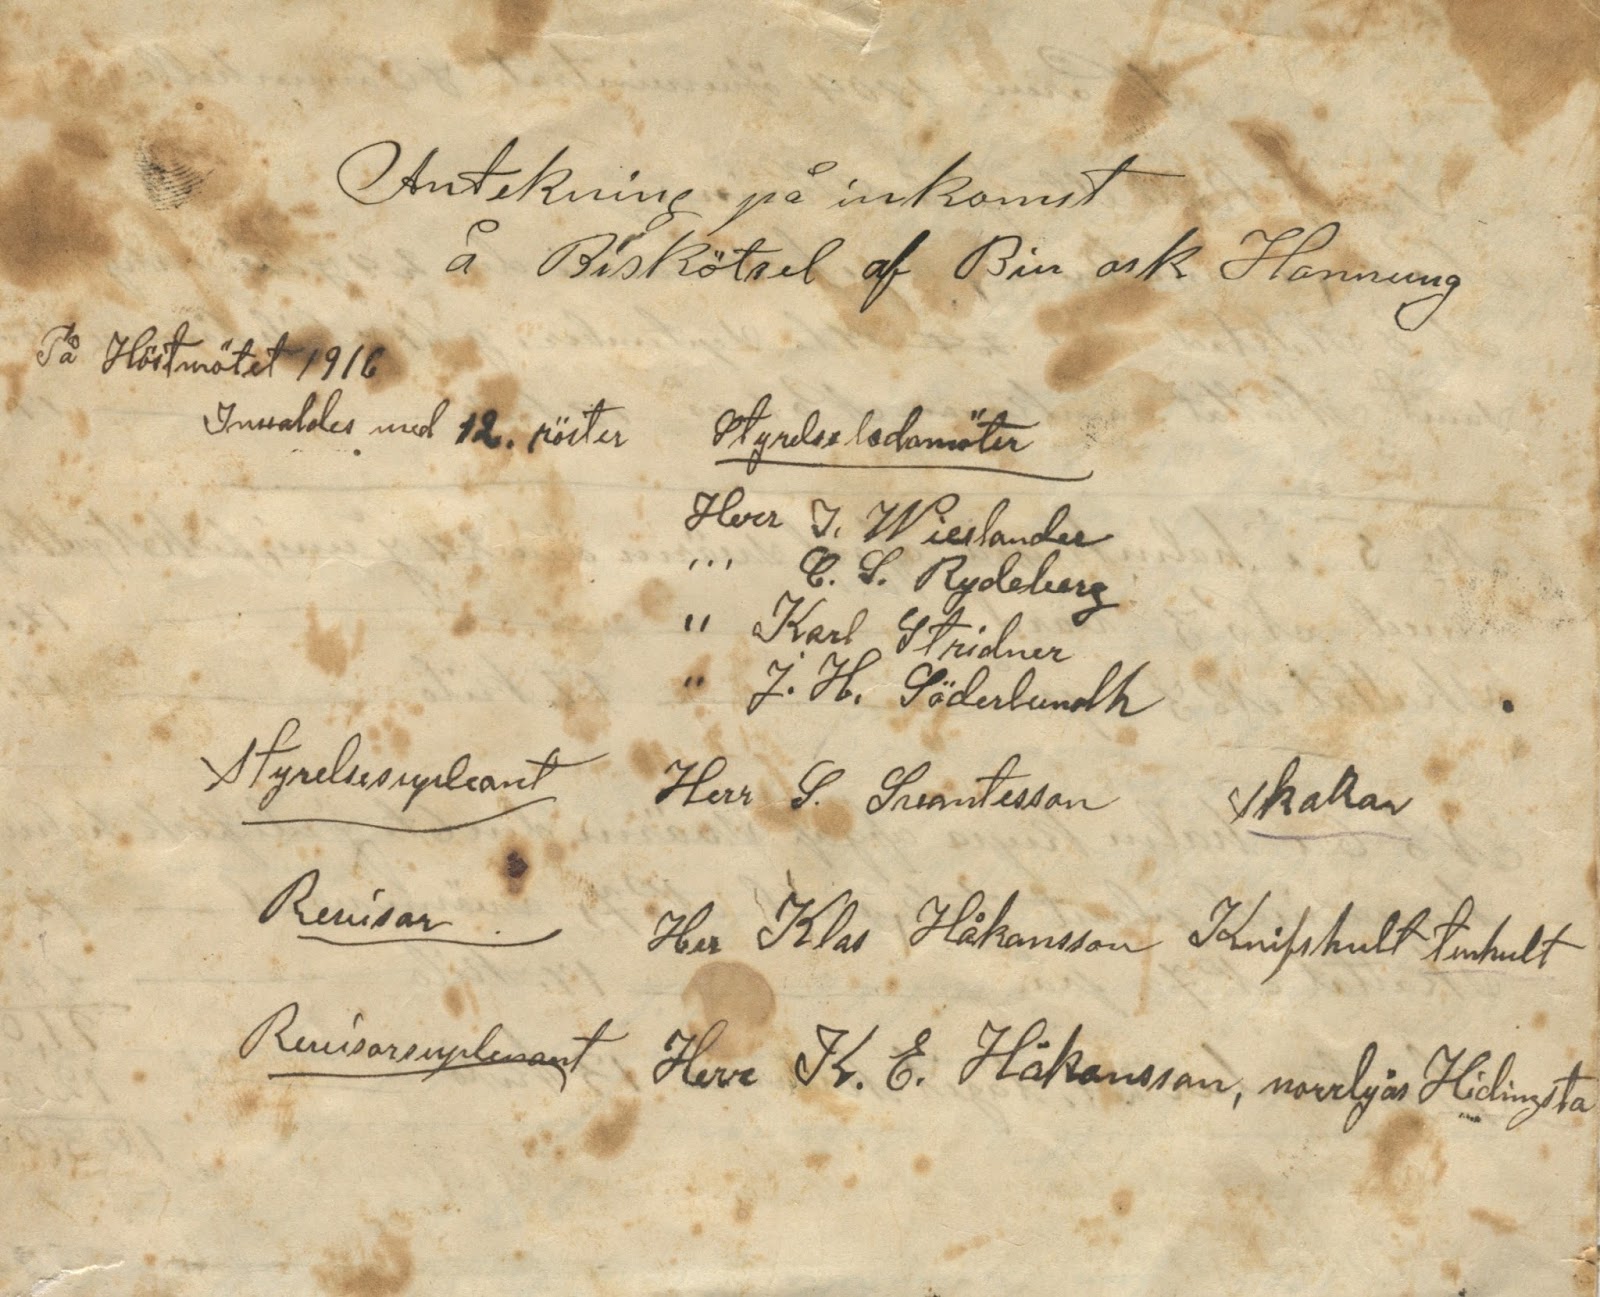 Antekning på inkomst
å Biskötsel af Bin ock Honnung
På Höstmötet 1916
Invaldes med 12. röster
Styrelseledamöter
Herr J. Wieslander
''' C. S. Rydeberg
'' Karl Stridner
'' J. H. Söderlundh
Styrelsesupleant Herr S. Svantesson Skakan
Revisor Her Klas Håkansson Knifshult tenhult
Revisorsupleant Herr K. E. Håkansson, norrlyås Hidingsta